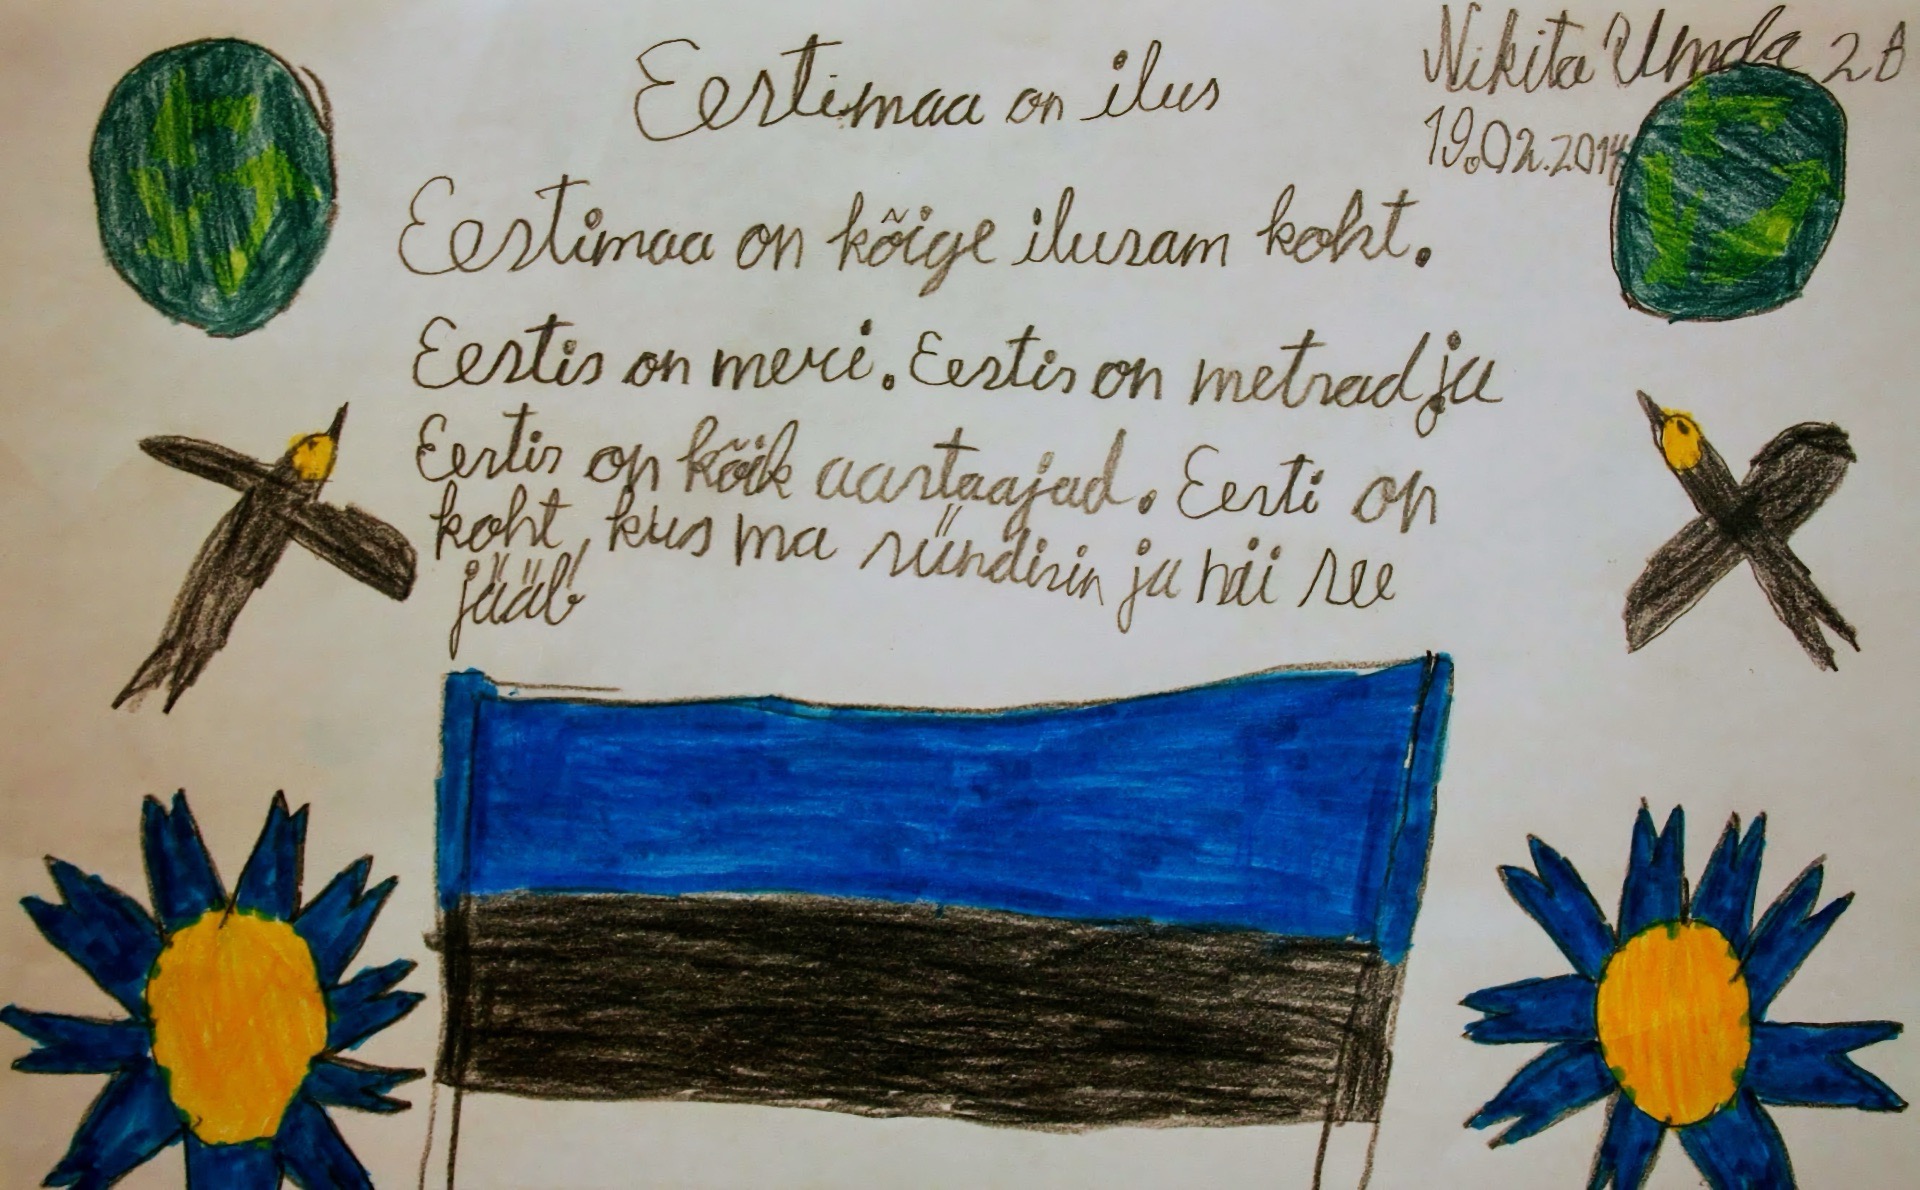 Nikita Umda 2B
19.02.2014
Eestimaa on ilus
Eestimaa on kõige ilusam koht.
Eestis on meri. Eestis on metsad ju
Eestis on kõik aastaajad. Eesti on
koht, kus ma sündisin ja nii see
jääb!